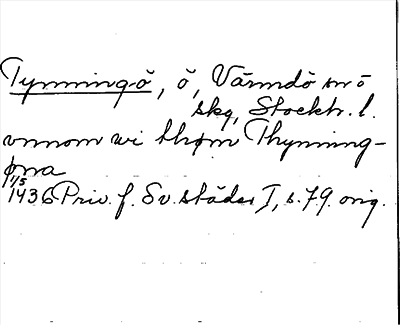 Tynningö, ö, Värmdö sn ö
skg, Stockh. l.
vnnom wi thøm Thynning-
øna
1/5
1436 Priv. f. Sv. städer I, s. 79. orig.